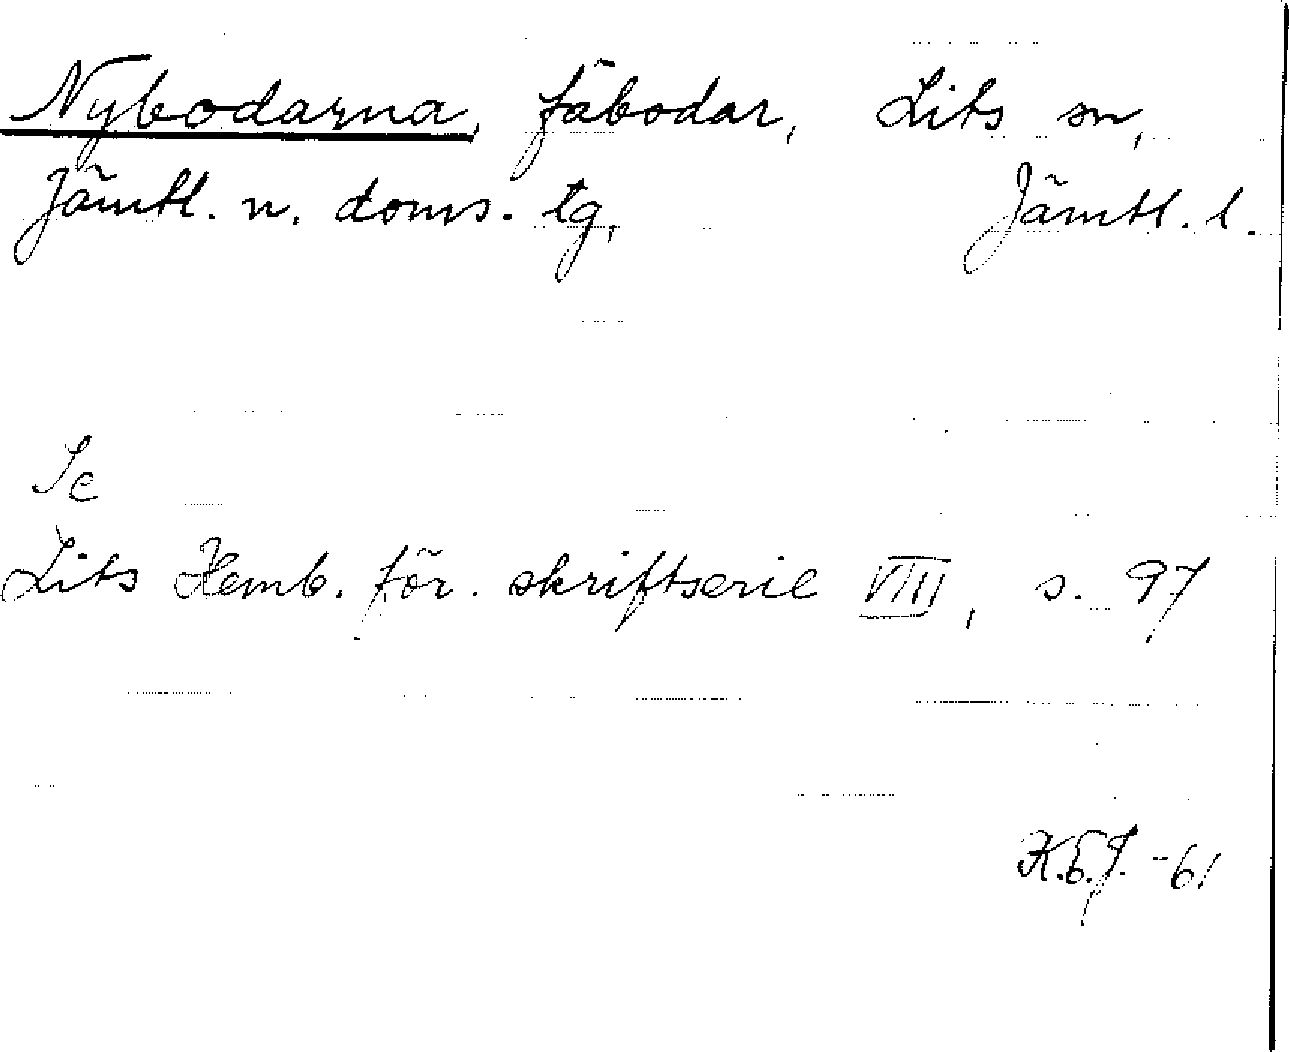 Nybodarna, fäbodar, Lits sn,
Jämtl. n. doms. tg, Jämtl. l.
Se
Lits Hemb. för. skriftserie VIII, s. 97
K.G.J. -61